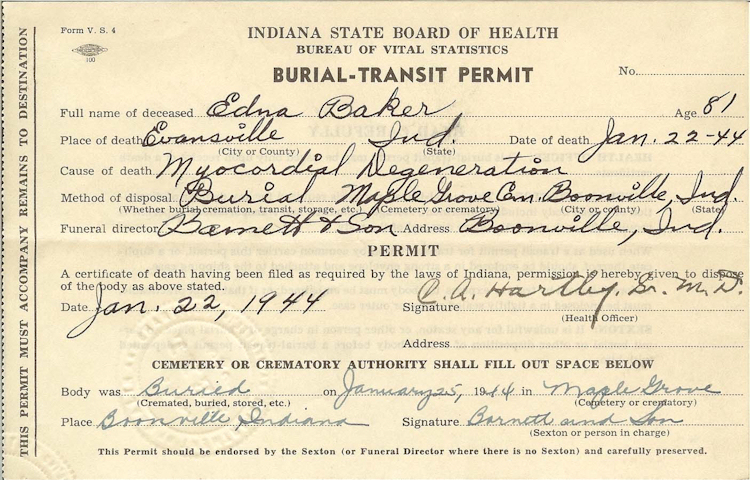 Form V. S. 4
100
INDIANA STATE BOARD OF HEALTH
BUREAU OF VITAL STATISTICS
BURIAL-TRANSIT PERMIT
No.
Full name of deceased Edna Baker Age 81
Place of death Evansville Ind. Date of death Jan. 22-44
(City or County) (State)
Cause of death Myocordial Degeneration
Method of disposal Burial Maple Grove Cem. Boonville, Ind.
(Whether burial, cremation, transit, storage, etc.) (Cemetery or crematory) (City or county) (State)
Funeral director Barnett & Son Address Boonville, Ind.
PERMIT
A certificate of death having been filed as required by the laws of Indiana, permission is hereby given to dispose
of the body as above stated.
Date Jan. 22, 1944 Signature C. A. Hartley, Sr. M.D.
(Health Officer)
Address
CEMETERY OR CREMATORY AUTHORITY SHALL FILL OUT SPACE BELOW
Body was Buried on January 25, 1944 in Maple Grove
(Cremated, buried, stored, etc.) (Cemetery or crematory)
Place Boonville, Indiana Signature Barnett and Son
(Sexton or person in charge)
This Permit should be endorsed by the Sexton (or Funeral Director where there is no Sexton) and carefully preserved.
THIS PERMIT MUST ACCOMPANY REMAINS TO DESTINATION